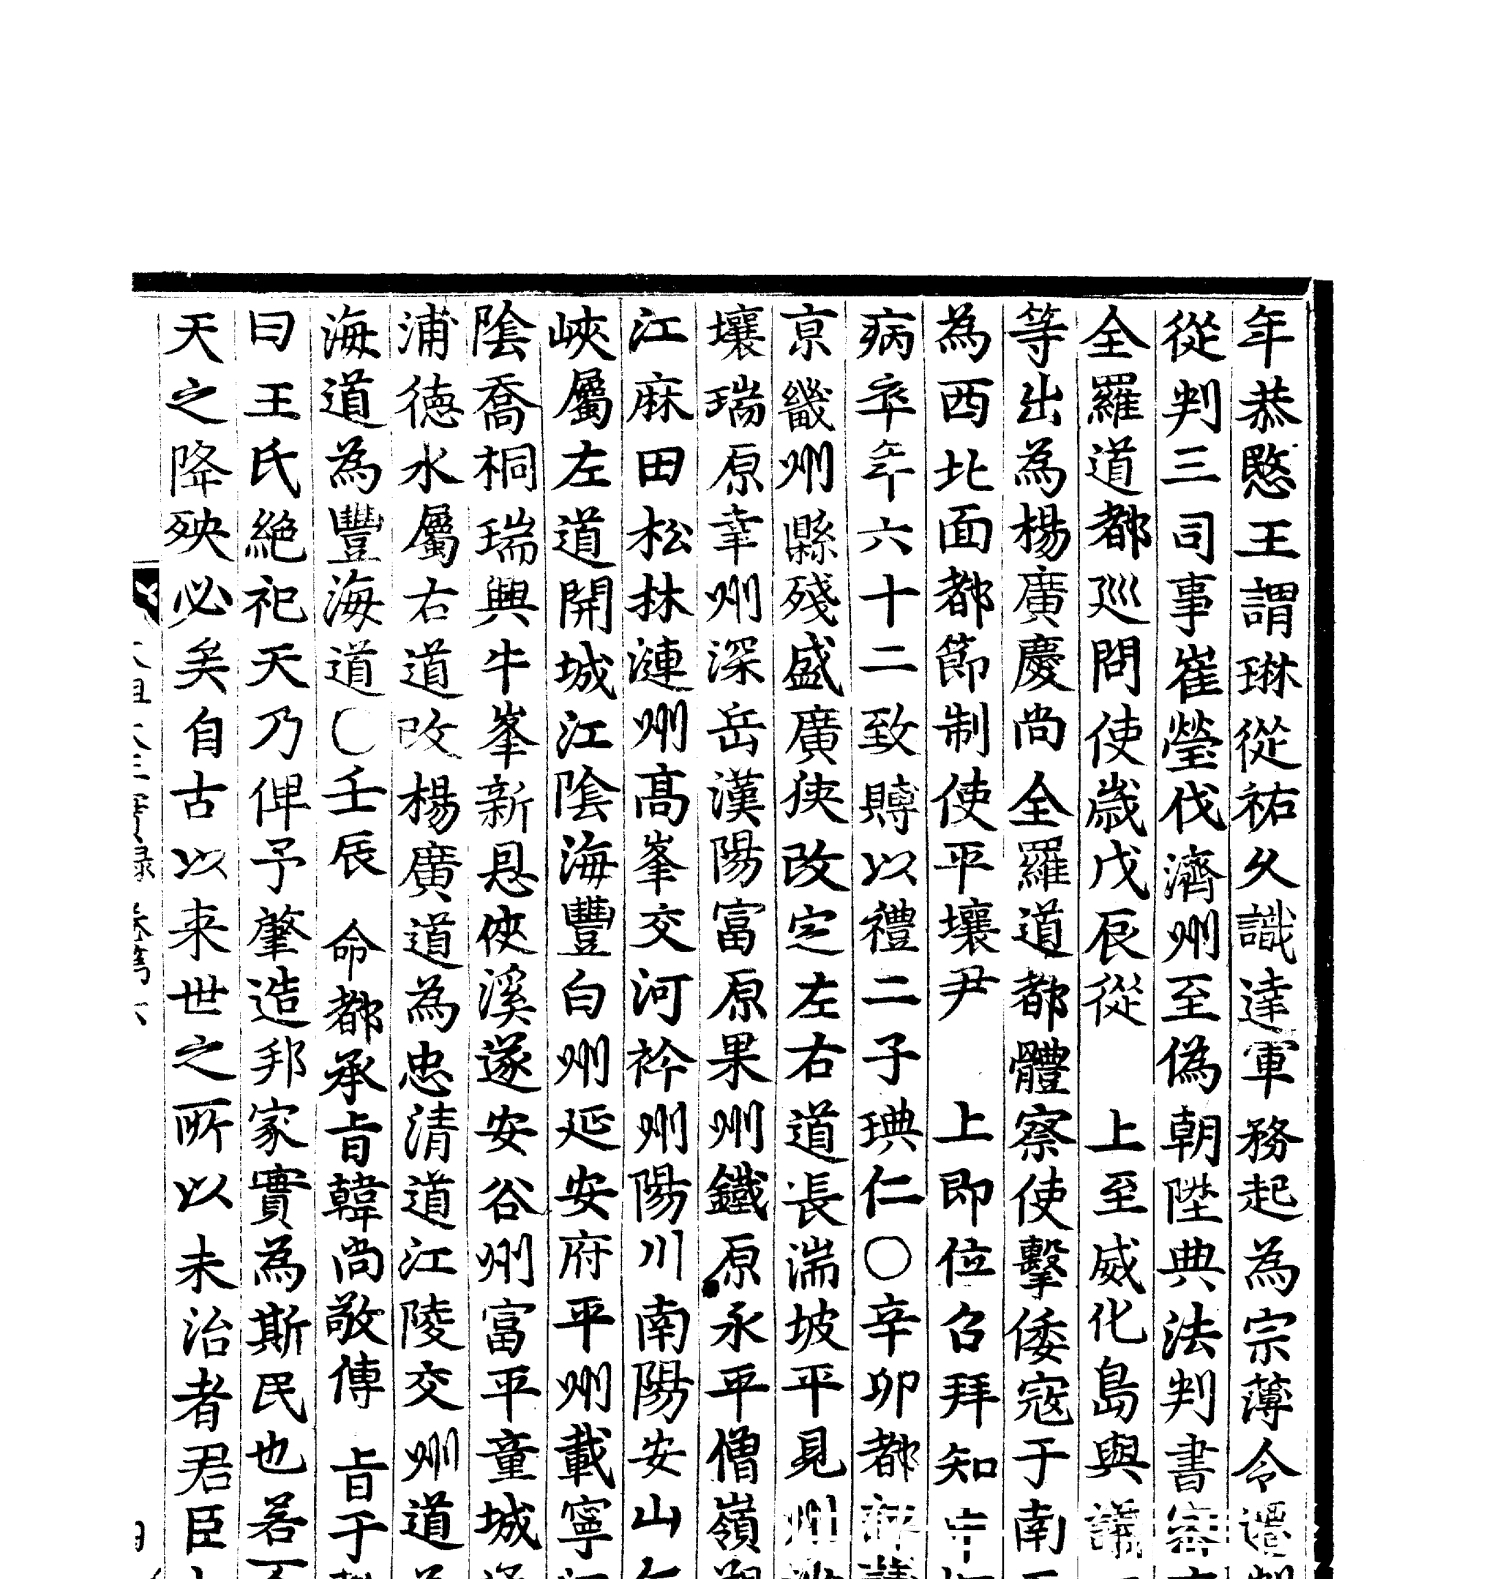 年恭愍王謂琳從祐久識達軍務起為宗薄令遷
從判三司事崔瑩伐濟州至偽朝陞典法判書密
全羅道都巡問使歲戊辰從 上至威化島與議
等出為楊廣慶尚全羅道都體察使擊倭寇于南
為西北面都節制使平壤尹 上即位召拜知中
病卒年六十二致賻以禮二子琠仁○辛卯都評
京畿州縣殘盛廣狹改定左右道長湍坡平見州
壤瑞原幸州深岳漢陽富原果州鐵原永平僧嶺朔
江麻田松林漣州高峯交河衿州陽川南陽安山仁
峽屬左道開城江陰海豐白州延安府平州載寧
陰喬桐瑞興牛峯新恩俠溪遂安谷州富平童城通
浦德水屬右道改楊廣道為忠清道江陵交州道為
海道為豐海道○壬辰 命都承旨韓尚敬傳 旨于
曰王氏絕祀天乃俾予肇造邦家實為斯民也若不
天之降殃必矣自古以来世之所以未治者君臣
太祖大王實錄 卷第六